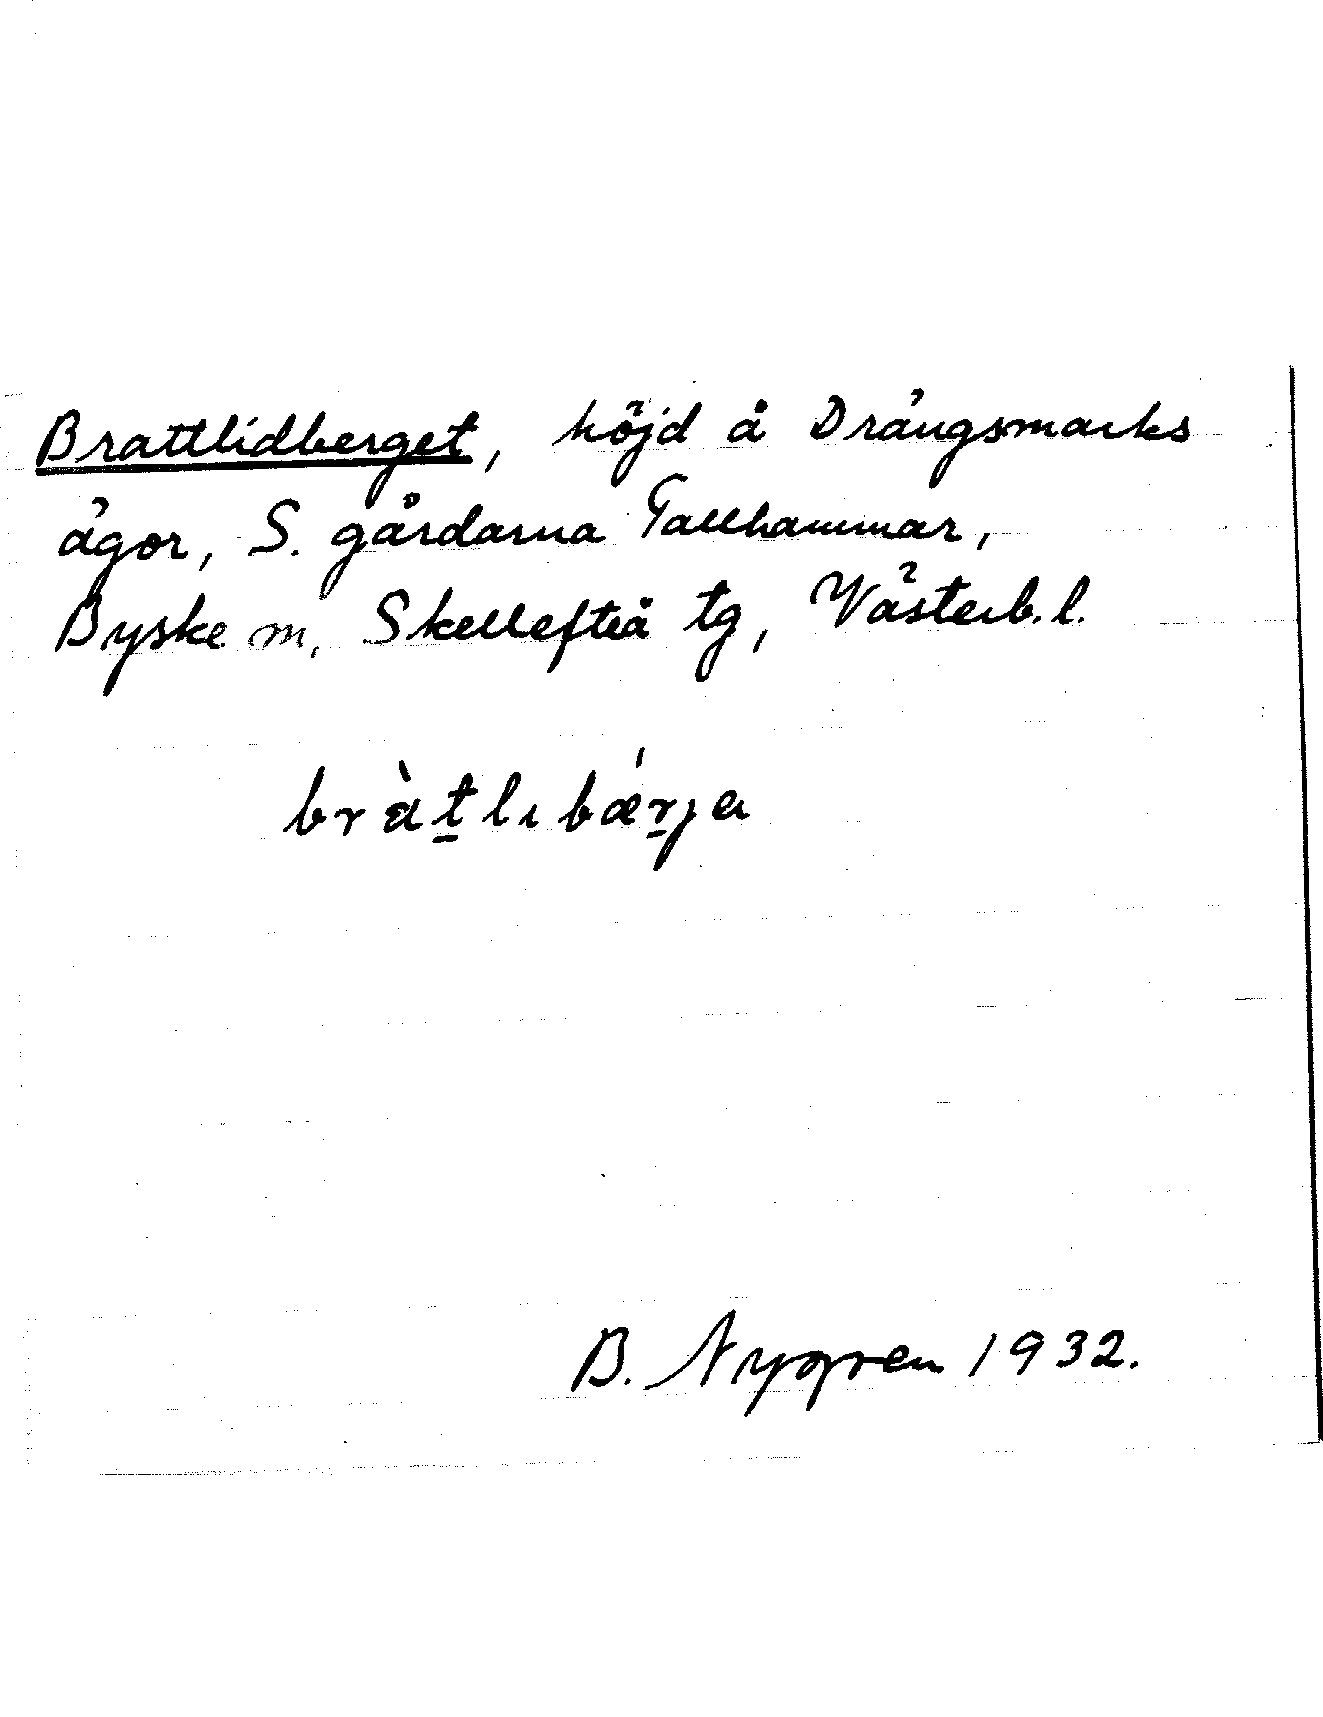 Brattlidberget, höjd å Drängsmarks
ägor, S. gårdarna Tallhammar,
Byske m, Skellefteå tg, Västerb. l.
bràt̲lıbǽr̲ja
B. Nygren 1932.